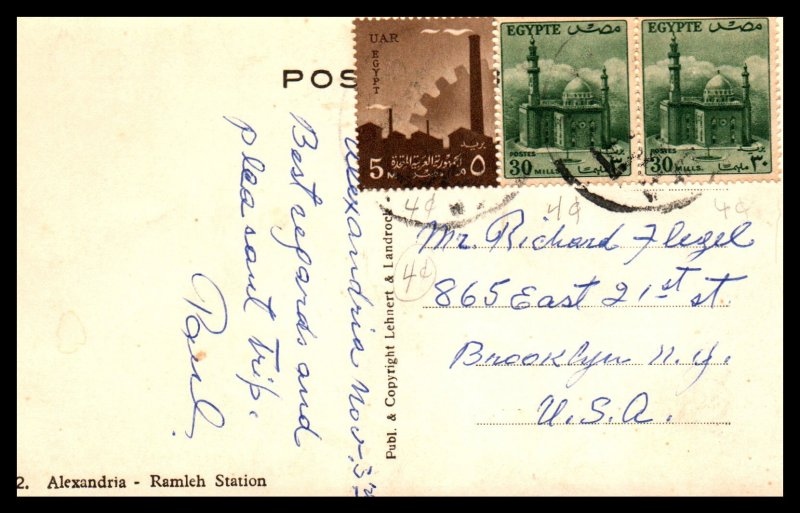 POS
UAR
EGYPT
الجمهورية العربية المتحدة
5
٥
EGYPTE
مصر
POSTES
بريد
30 MILLS.
٣٠ مليمات
EGYPTE
مصر
POSTES
بريد
30 MILLS.
٣٠ مليمات
4¢
4¢
4¢
4¢
Alexandria Nov. 3
Best regards and
pleasant trip.
Paul.
Publ. & Copyright Lehnert & Landrock -
Mr. Richard Flegel
865 East 21st st.
Brooklyn N.Y.
U.S.A.
2. Alexandria - Ramleh Station